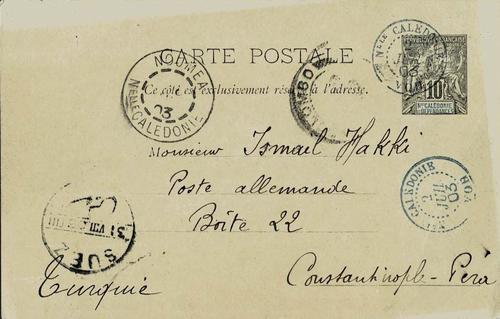 CARTE POSTALE
Ce côté est exclusivement réservé à l'adresse.
NOUMEA
03
NELLE CALÉDONIE
COLOMBO
NELLE CALÉDONIE
03
10
NLLE CALÉDONIE
ET DÉPENDANCES
Monsieur Ismail Hakki
Poste allemande
Boîte 22
Constantinople-Péra
Turquie
CALÉDONIE
2
JUIL
03
SUEZ
31 VIII